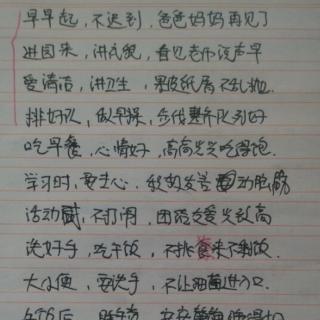 早早起，不迟到，爸爸妈妈再见了
进园来，讲礼貌，看见老师说声早
爱清洁，讲卫生，果皮纸屑不乱抛
排好队，做早操，整齐队列好
吃早餐，心情好，高高兴兴吃得饱.
学习时，要专心．积极发言动脑筋
活动时，不打闹，团结友爱兴致高
洗好手，吃午饭，不挑食来不剩饭．
大小便，要洗手，不让细菌进入口．
午饭后，睡午觉，安安静静睡得好